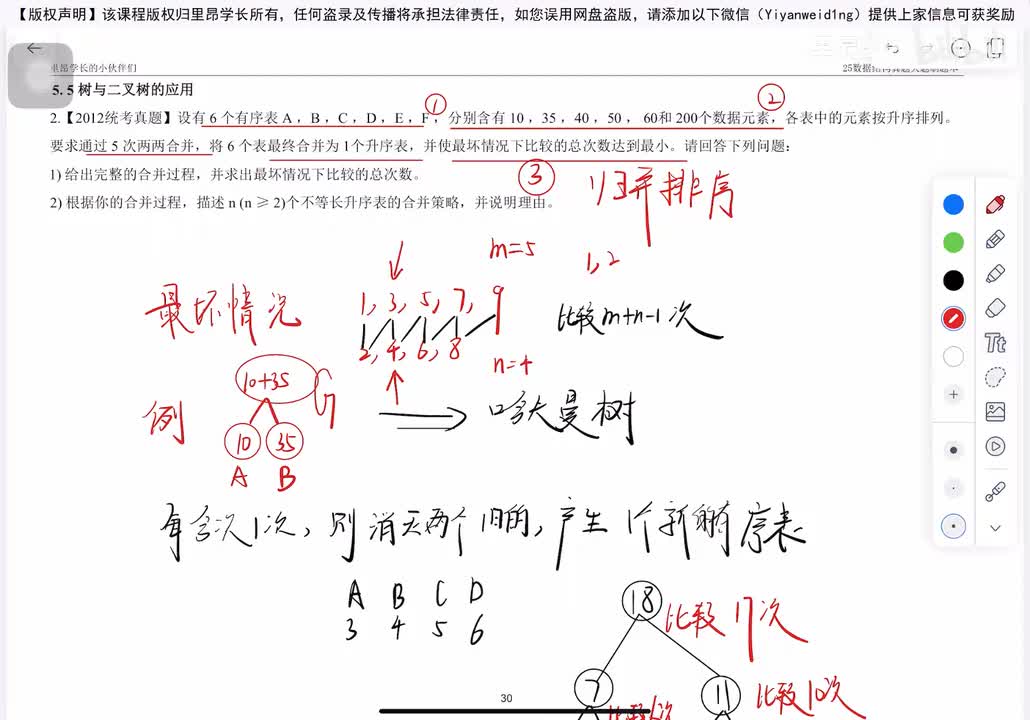 【版权声明】该课程版权归里昂学长所有，任何盗录及传播将承担法律责任，如您误用网盘盗版，请添加以下微信（Yiyanweid1ng）提供上家信息可获奖励
里昂学长的小伙伴们
5.5 树与二叉树的应用
2.【2012统考真题】设有 6 个有序表 A，B，C，D，E，F，分别含有 10，35，40，50，60和 200个数据元素，各表中的元素按升序排列。
① ②
要求通过 5 次两两合并，将 6 个表最终合并为 1个升序表，并使最坏情况下比较的总次数达到最小。请回答下列问题：
1) 给出完整的合并过程，并求出最坏情况下比较的总次数。
③ 归并排序
2) 根据你的合并过程，描述 n (n ≥ 2)个不等长升序表的合并策略，并说明理由。
m=5 1,2
最坏情况 1, 3, 5, 7, 9 比较m+n-1次
2, 4, 6, 8 n=4
10+35 G
例 10 35 哈夫曼树
A B
每合并1次，则消灭两个旧的，产生1个新的有序表
A B C D
3 4 5 6
18 比较17次
7 11 比较10次
比较6次
30
Tt